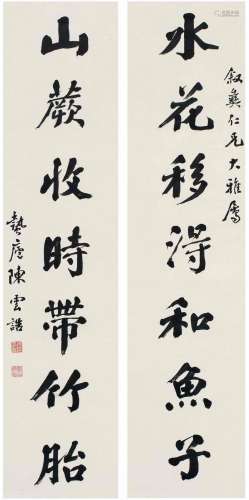 敘彝仁兄大雅屬
水花移得和魚子
山蕨收時帶竹胎
藝广陳雲誥